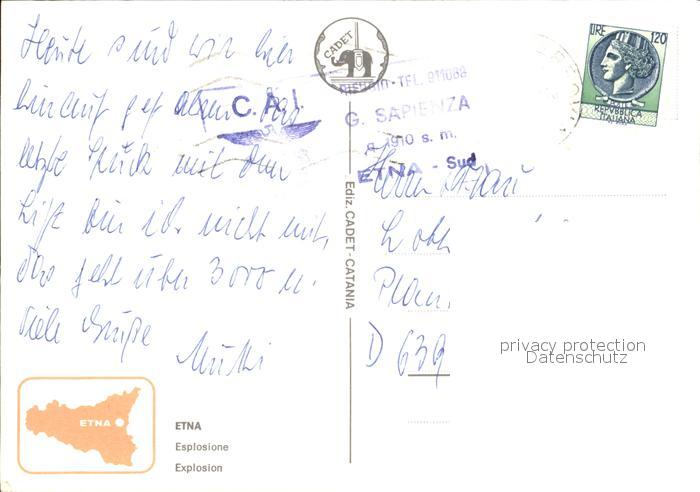 Heute sind wir hier
hinauf gefahren. Das
letzte Stück mit dem
Lift bin ich nicht mit,
das geht über 3000 m.
Viele Grüße
Mutti
CADET
C.A.I.
TEL. 911068
G. SAPIENZA
1910 s. m.
ETNA - Sud
LIRE 120
REPVBBLICA
ITALIANA
Ediz. CADET - CATANIA
Herrn
D 639
privacy protection
Datenschutz
ETNA
ETNA
Esplosione
Explosion